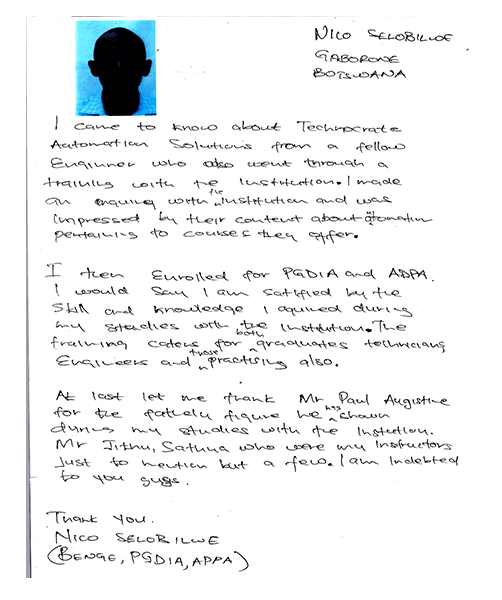 NICO SELOBILWE
GABORONE
BOTSWANA
I came to know about Technocrate
Automation Solutions from a fellow
Enginner who also went through a
training with the institution. I made
an enquiry with the institution and was
impressed by their content about
pertaining to courses they offer.
I then Enrolled for PGDIA and ADPA.
I would say I am satified by the
skill and knowledge I aquired during
my studies with the institution. The
training caters for both graduates technicians
Engineers and those practising also.
At last let me thank Mr Paul Augistine
for the fatherly figure he has shown
during my studies with the Instution.
Mr Jithu, Sathya who were my instructors
just to mention but a few. I am indebted
to you guys.
Thank you.
NICO SELOBILWE
(BENGE, PGDIA, APPA)